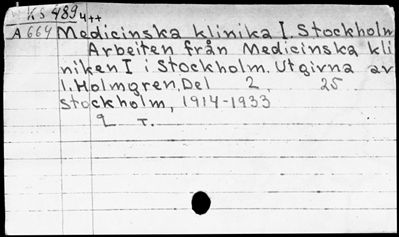 KS 489 u++
A 664 Medicinska klinika I. Stockholm
Arbeiten från Medicinska kli
niken I i Stockholm. Utgivna av
I. Holmgren. Del 2, 25
Stockholm, 1914-1933
2 т.